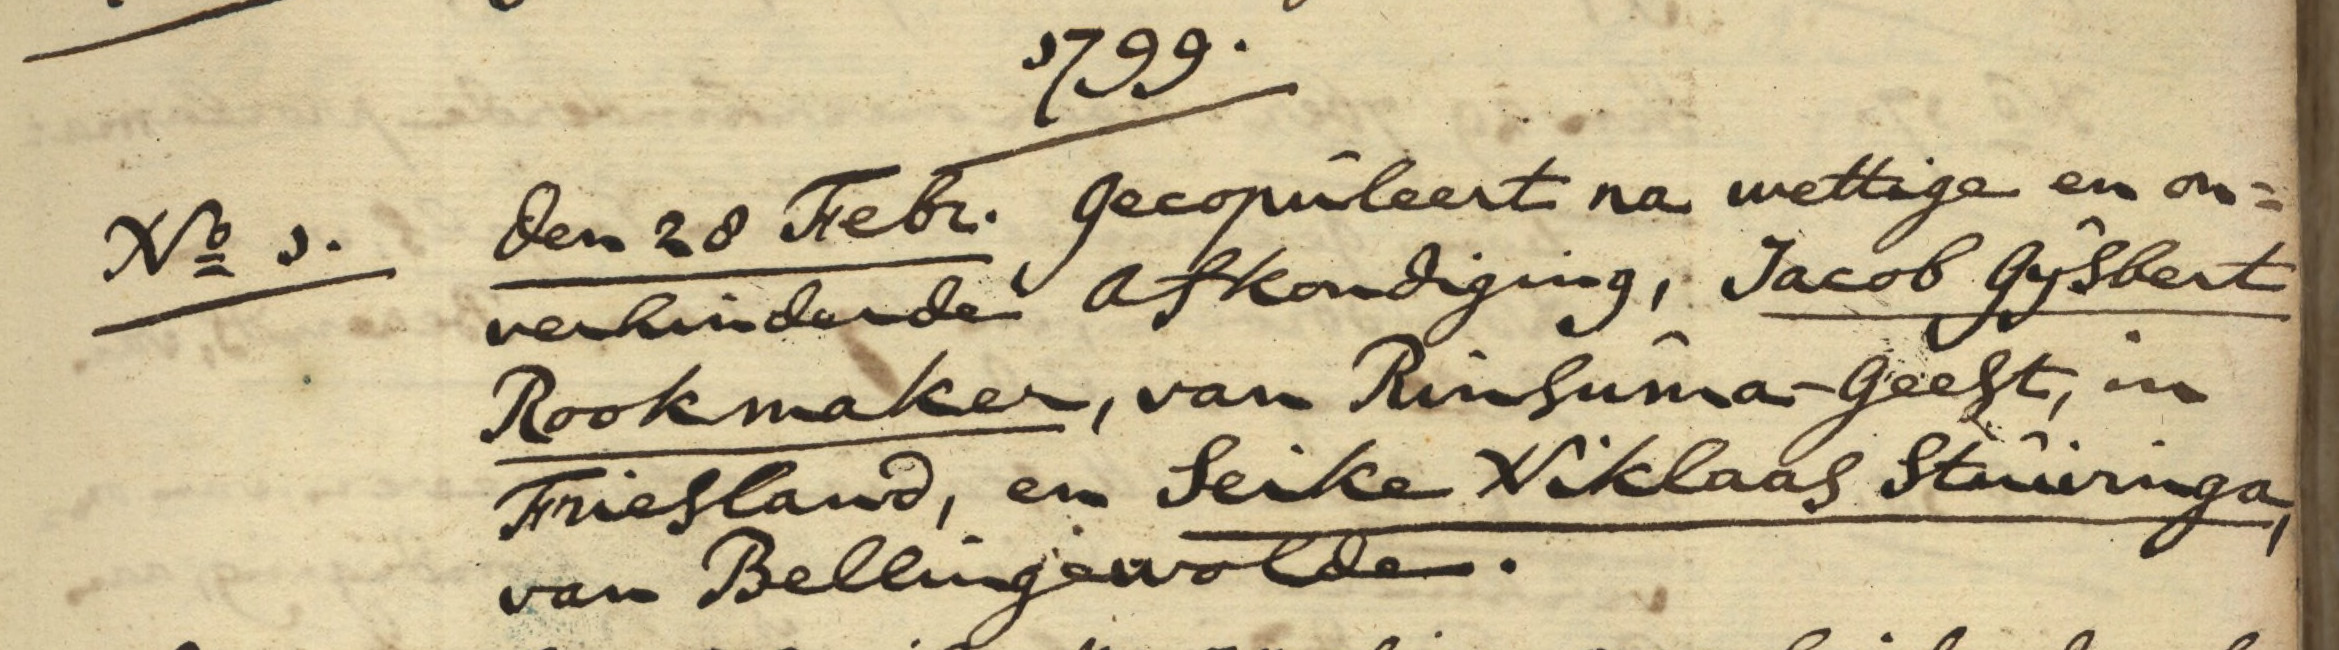 1799.
No 1. den 28 Febr. Gecopúleert na wettige en on=
verhinderde Afkondiging, Jacob Gÿsbert
Rookmaker, van Rinsúma-Geest, in
Friesland, en Seike Niklaas Stúiringa,
van Bellingewolde.